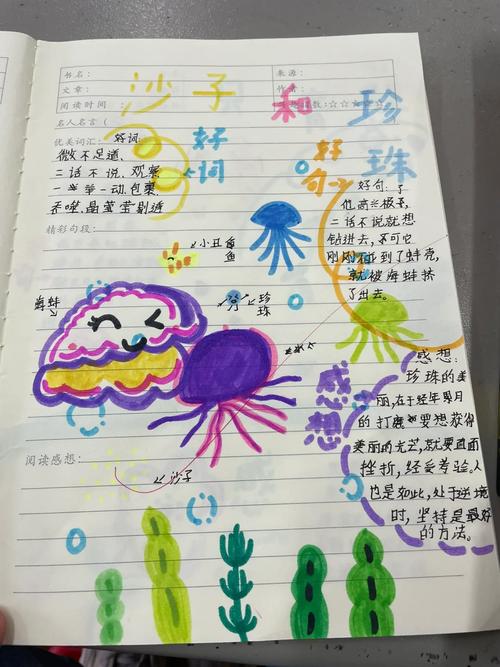 书名：
来源：
文章：
作者：
阅读时间：
☆☆☆☆☆
沙子
和
珍珠
名人名言（
优美词汇：好词
微不足道、
二话不说、观察
一举一动、包裹、
吞噬、晶莹剔透
好词
好句
好句：
他高兴极了,
二话不说就想
钻进去,不可它
刚刚不到了蚌壳,
就被海蚌挤
了出去。
精彩句段：
小丑鱼
鱼
海蚌
珍珠
水
感想
感想：
珍珠的美
丽,在于经年累月
的打磨
要想获得
美丽的光芒,就要直面
挫折,经受考验。人
也是如此,处于逆境
时,坚持是最好
的方法。
阅读感想：
沙子